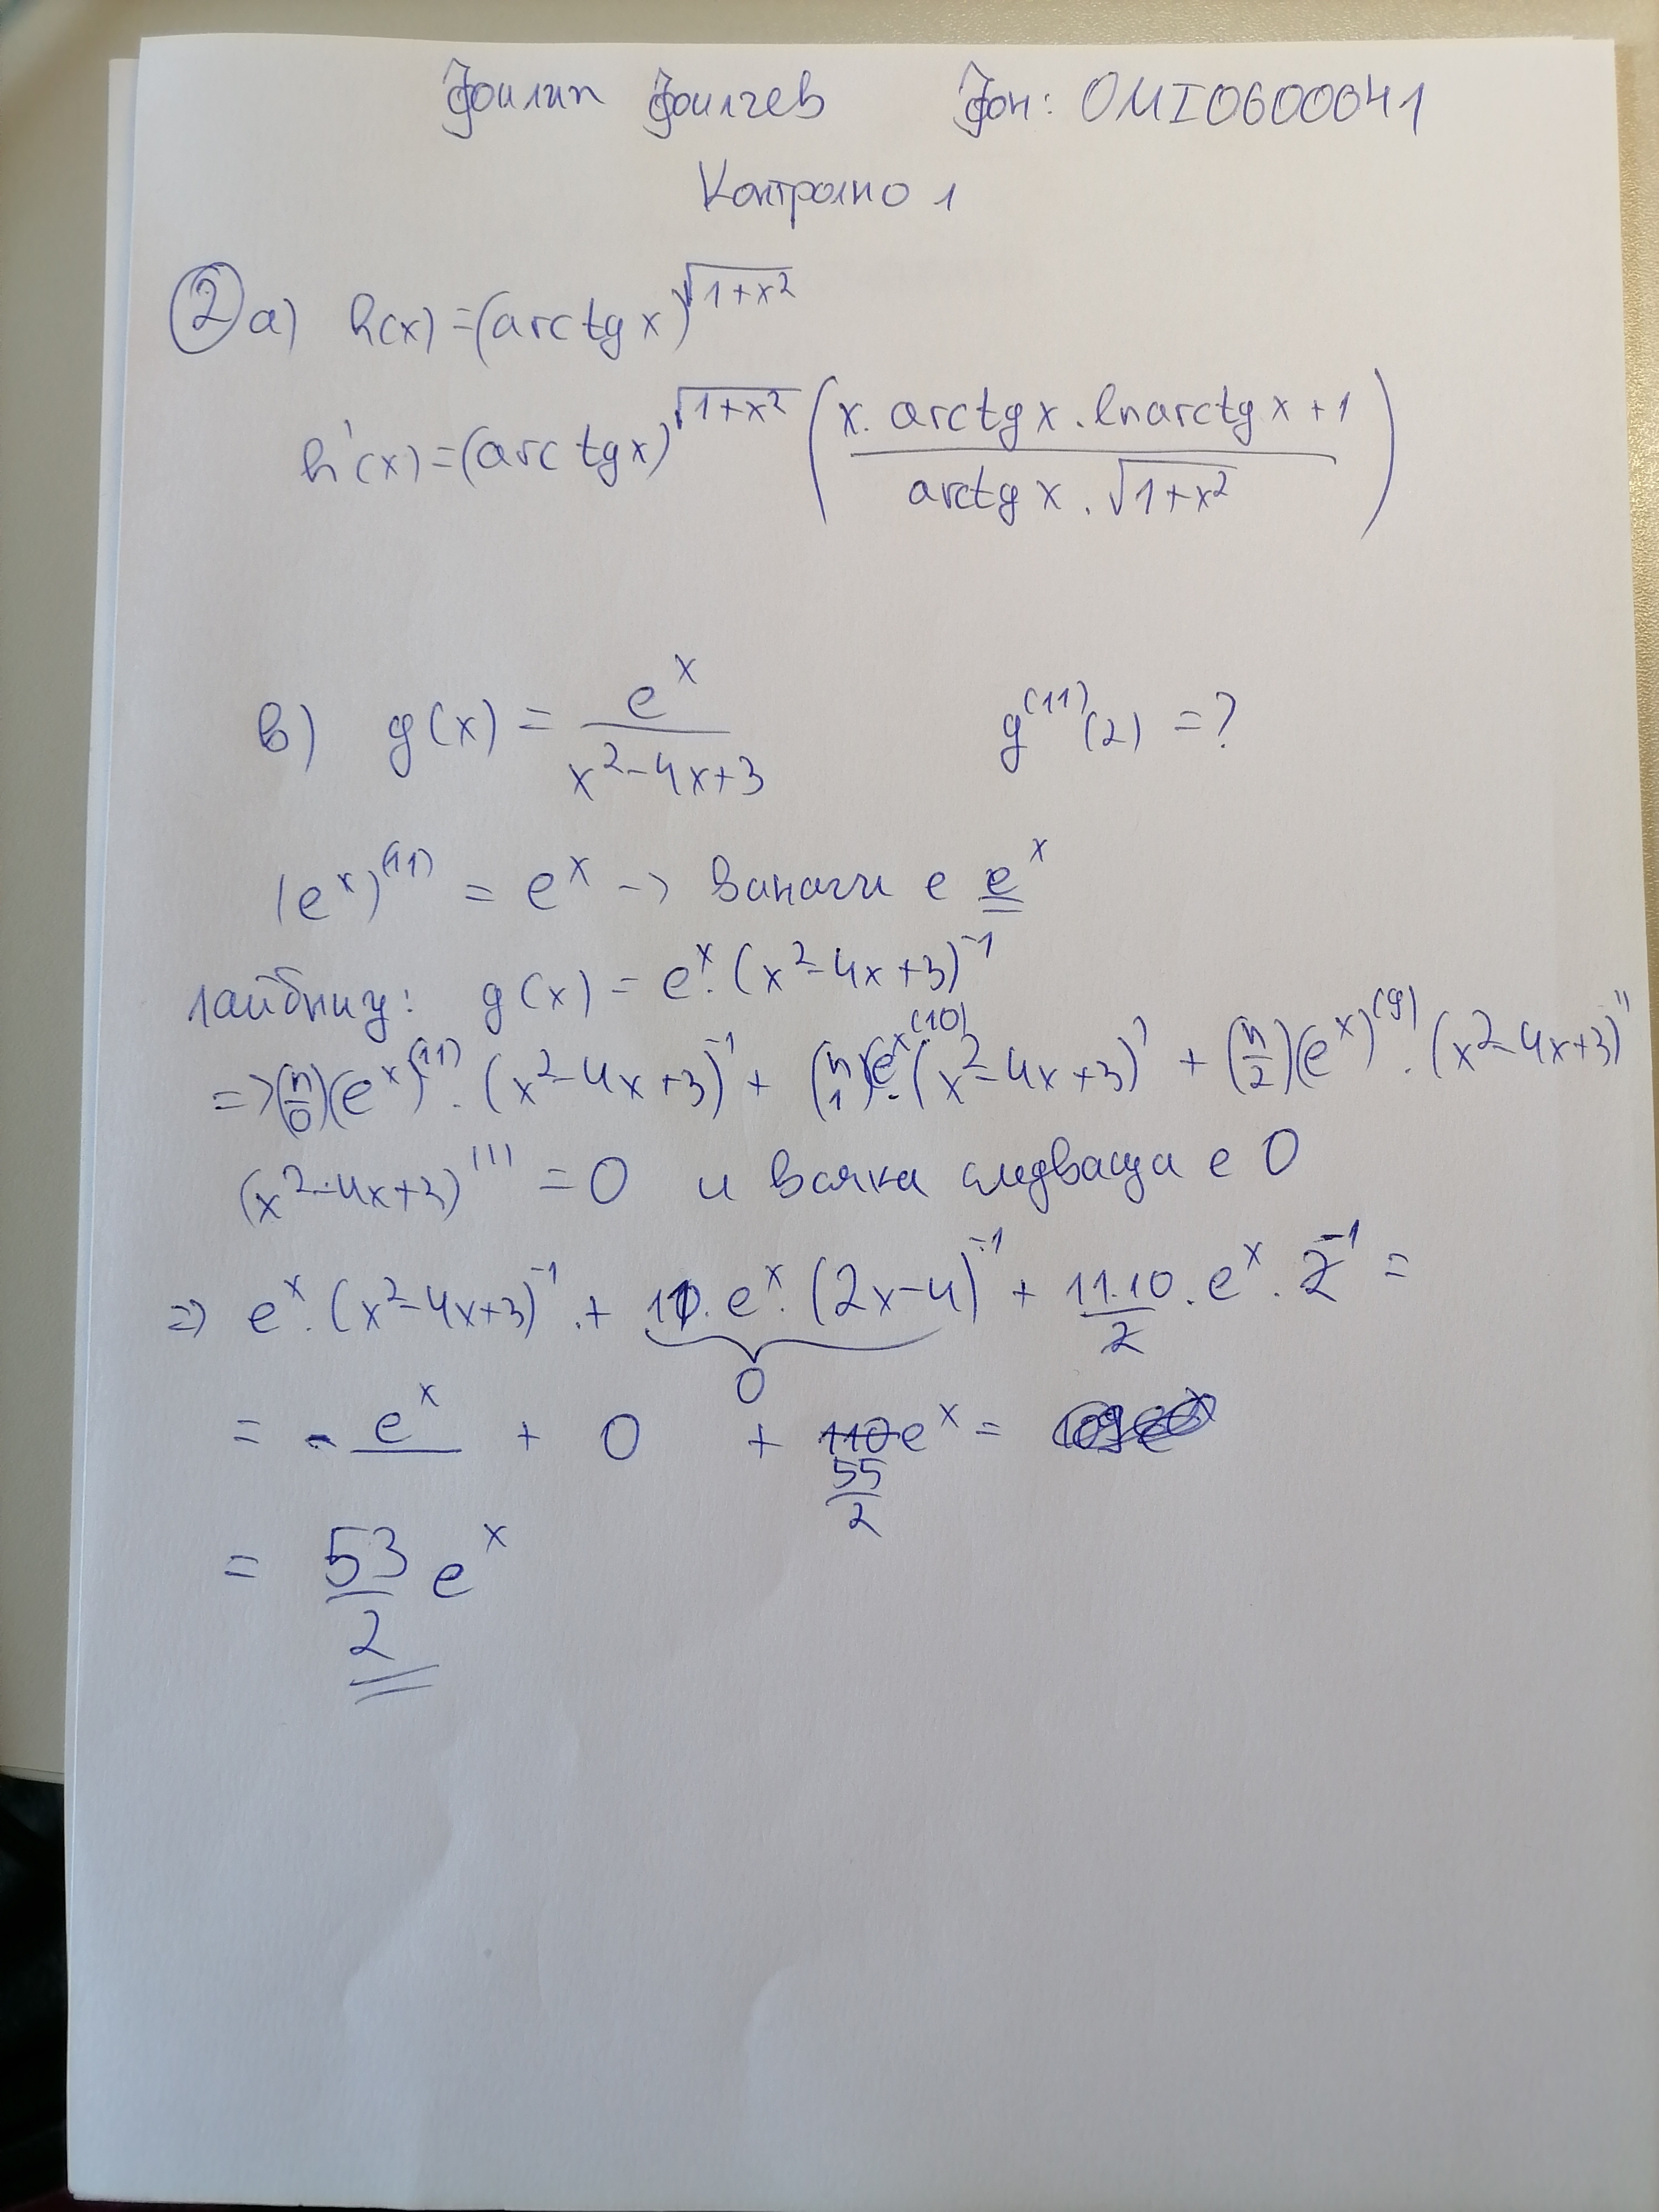 Филип Филчев Фон: 0MI0600041
Контролно 1
2 a) h(x) = (arctg x)^√(1+x²)
h'(x) = (arctg x)^√(1+x²) (x. arctg x . ln arctg x + 1 / arctg x . √(1+x²))
в) g(x) = e^x / x²-4x+3 g^(11)(2) = ?
(e^x)^(11) = e^x -> винаги е e^x
Лайбниц: g(x) = e^x . (x²-4x+3)^-1
=> (n 0)(e^x)^(11) . (x²-4x+3)^-1 + (n 1)e^x^(10) . (x²-4x+3)' + (n 2)(e^x)^(9) . (x²-4x+3)''
(x²-4x+3)''' = 0 и всяка следваща е 0
=> e^x . (x²-4x+3)^-1 + 11. e^x . (2x-4)^-1 + 11.10/2 . e^x . 2^-1 =
0
= - e^x + 0 + 110 e^x =
55/2
= 53/2 e^x